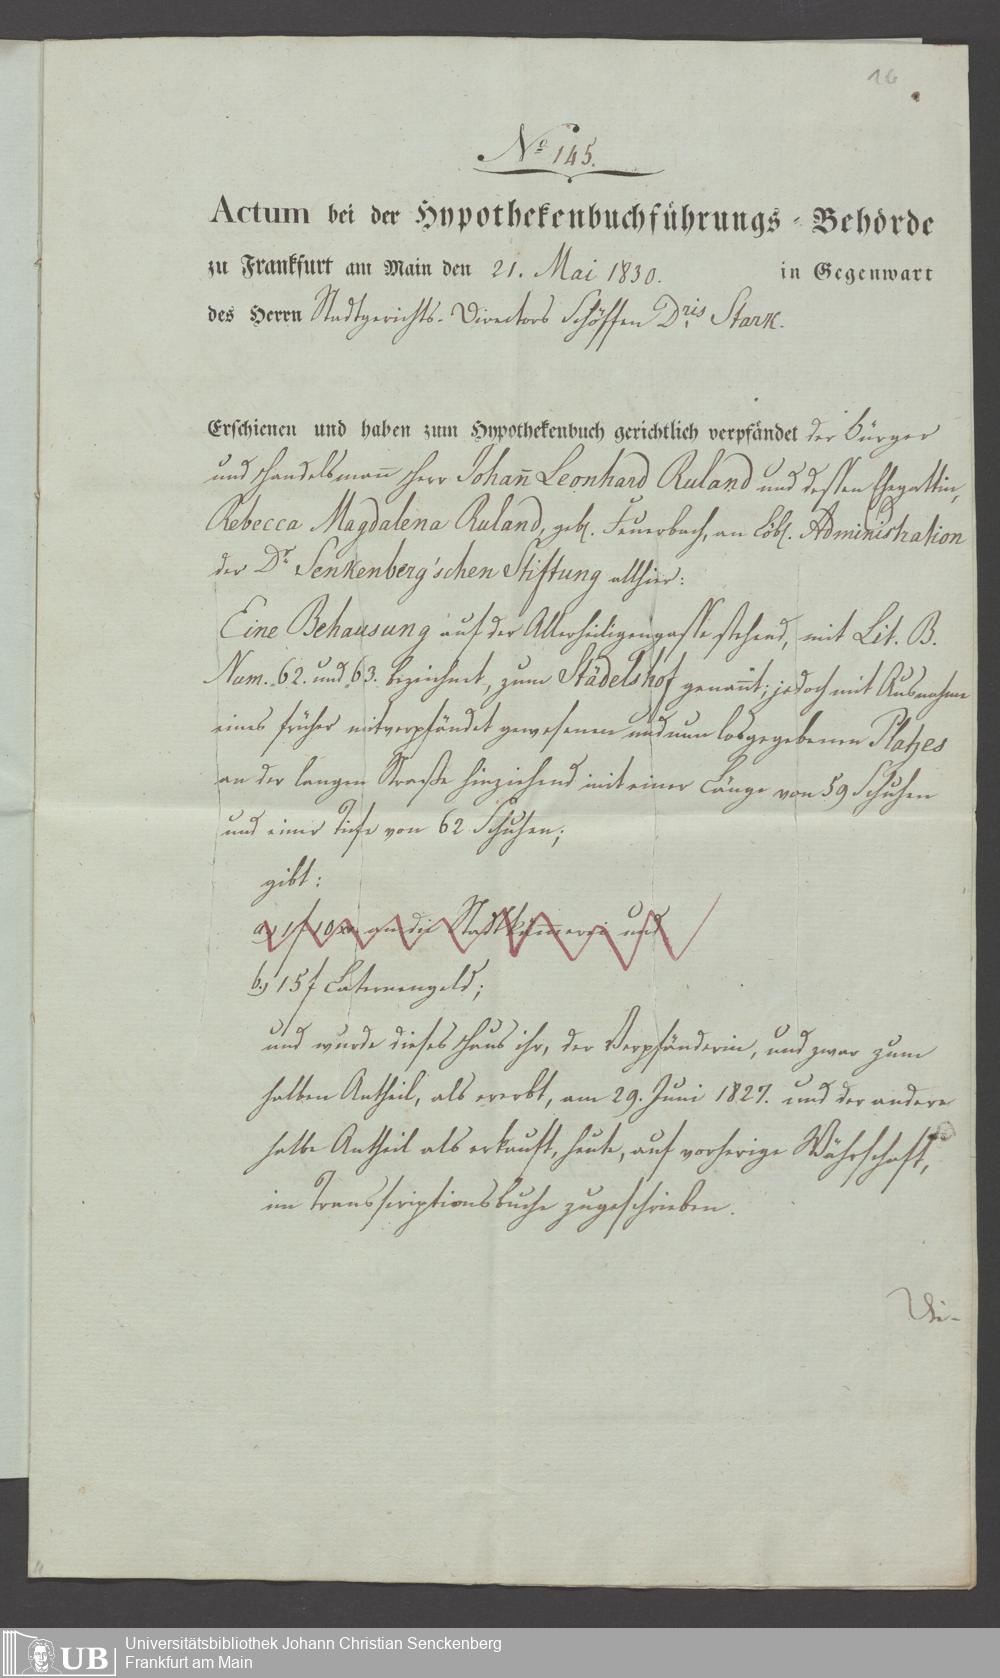 16
No 145.
Actum bei der Hypothekenbuchführungs-Behörde
zu Frankfurt am Main den 21. Mai 1830. in Gegenwart
des Herrn Stadtgerichts-Directors Schöffen Dris Stark.
Erschienen und haben zum Hypothekenbuch gerichtlich verpfändet der Bürger
und Handelsmañ Herr Johañ Leonhard Ruland und dessen Ehegattin,
Rebecca Magdalena Ruland, geb. Feuerbach, an Löbl. Administration
der Dr. Senkenberg'schen Stiftung allhier:
Eine Behausung auf der Allerheiligengasse stehend, mit Lit. B.
Num. 62. und 63. bezeichnet, zum Städelshof genañt; jedoch mit Ausnahme
eines früher mitverpfändet gewesenen und nun losgegebenen Platzes
an der langen Straße hinziehend mit einer Länge von 59 Schuhen
und einer Tiefe von 62 Schuhen;
gibt:
a) 1 f 10 xr. an die Stadtkäm̃erei und
b.) 15 f Laternengeld;
und wurde dieses Haus ihr, der Verpfänderin, und zwar zum
halben Antheil, als ererbt, am 29. Juni 1827. und der andere
halbe Antheil als erkauft, heute, auf vorherige Währschaft,
im Transscriptionsbuche zugeschrieben.
UB
Universitätsbibliothek Johann Christian Senckenberg
Frankfurt am Main